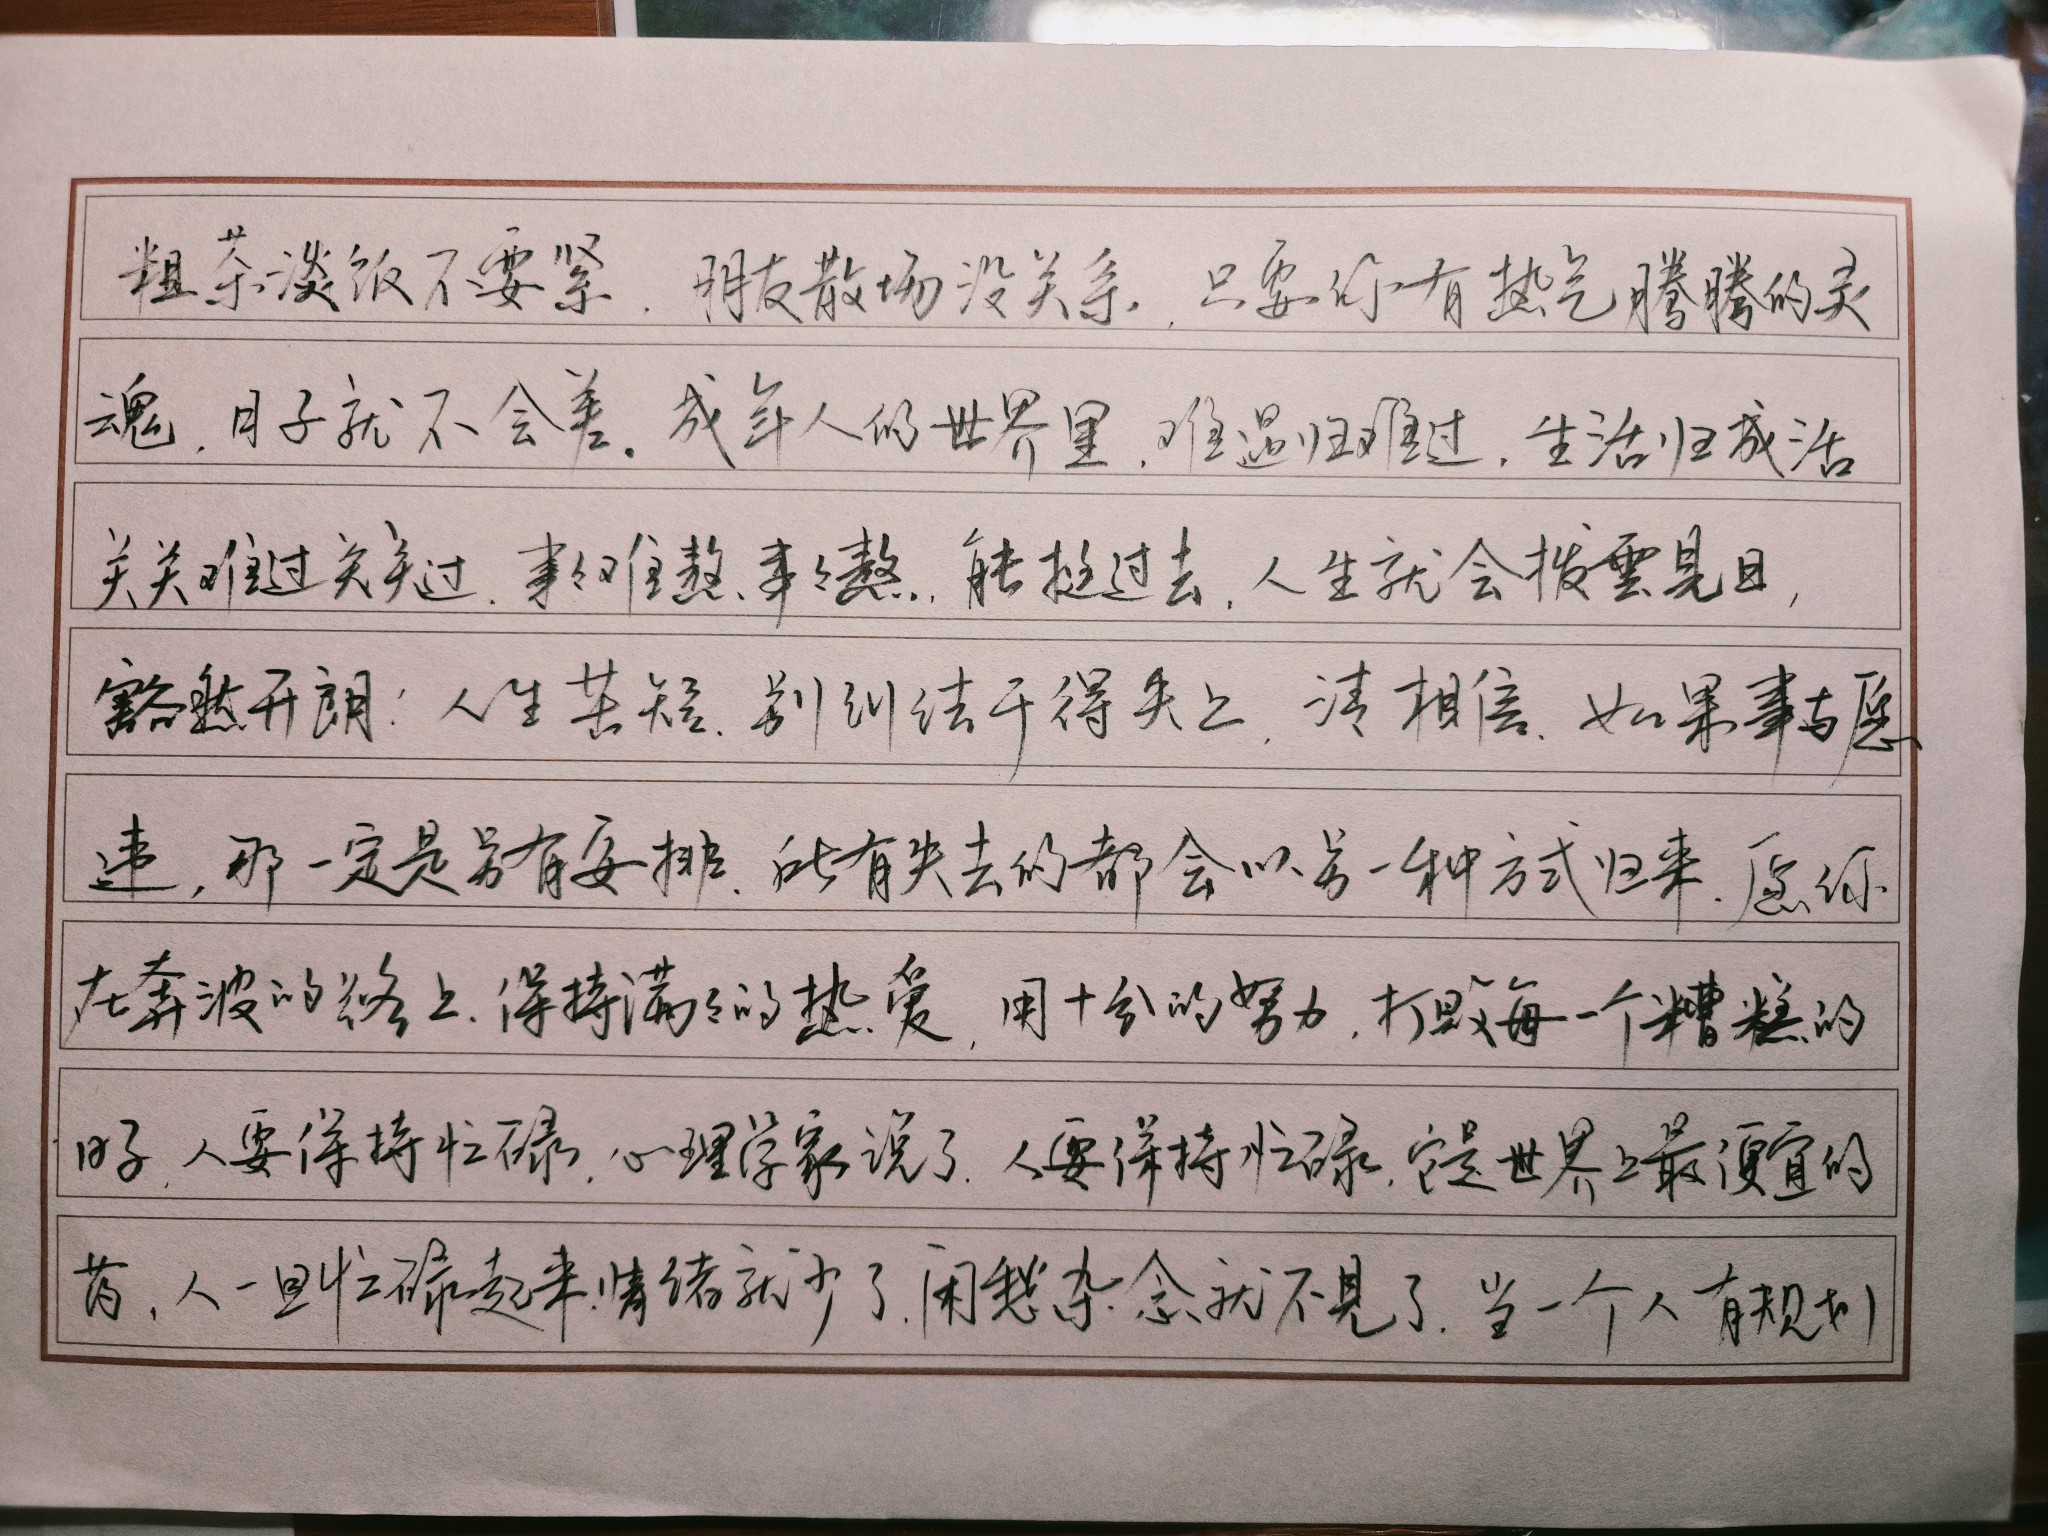 粗茶淡饭不要紧，朋友散场没关系，只要你有热气腾腾的灵
魂，日子就不会差。成年人的世界里，难过归难过，生活归成活
关关难过关关过，事々难熬，事々熬，能挺过去，人生就会拨雲见日，
豁然开朗！人生苦短，别纠结于得失上，请相信，如果事与愿
违，那一定是另有安排，所有失去的都会以另一种方式归来，愿你
在奔波的路上，保持满々的热爱，用十分的努力，打毁每一个糟糕的
日子，人要保持忙碌，心理学家说了，人要保持忙碌，它是世界上最便宜的
药，人一旦忙碌起来，情绪就少了，闲愁杂念就不见了，当一个人有规划